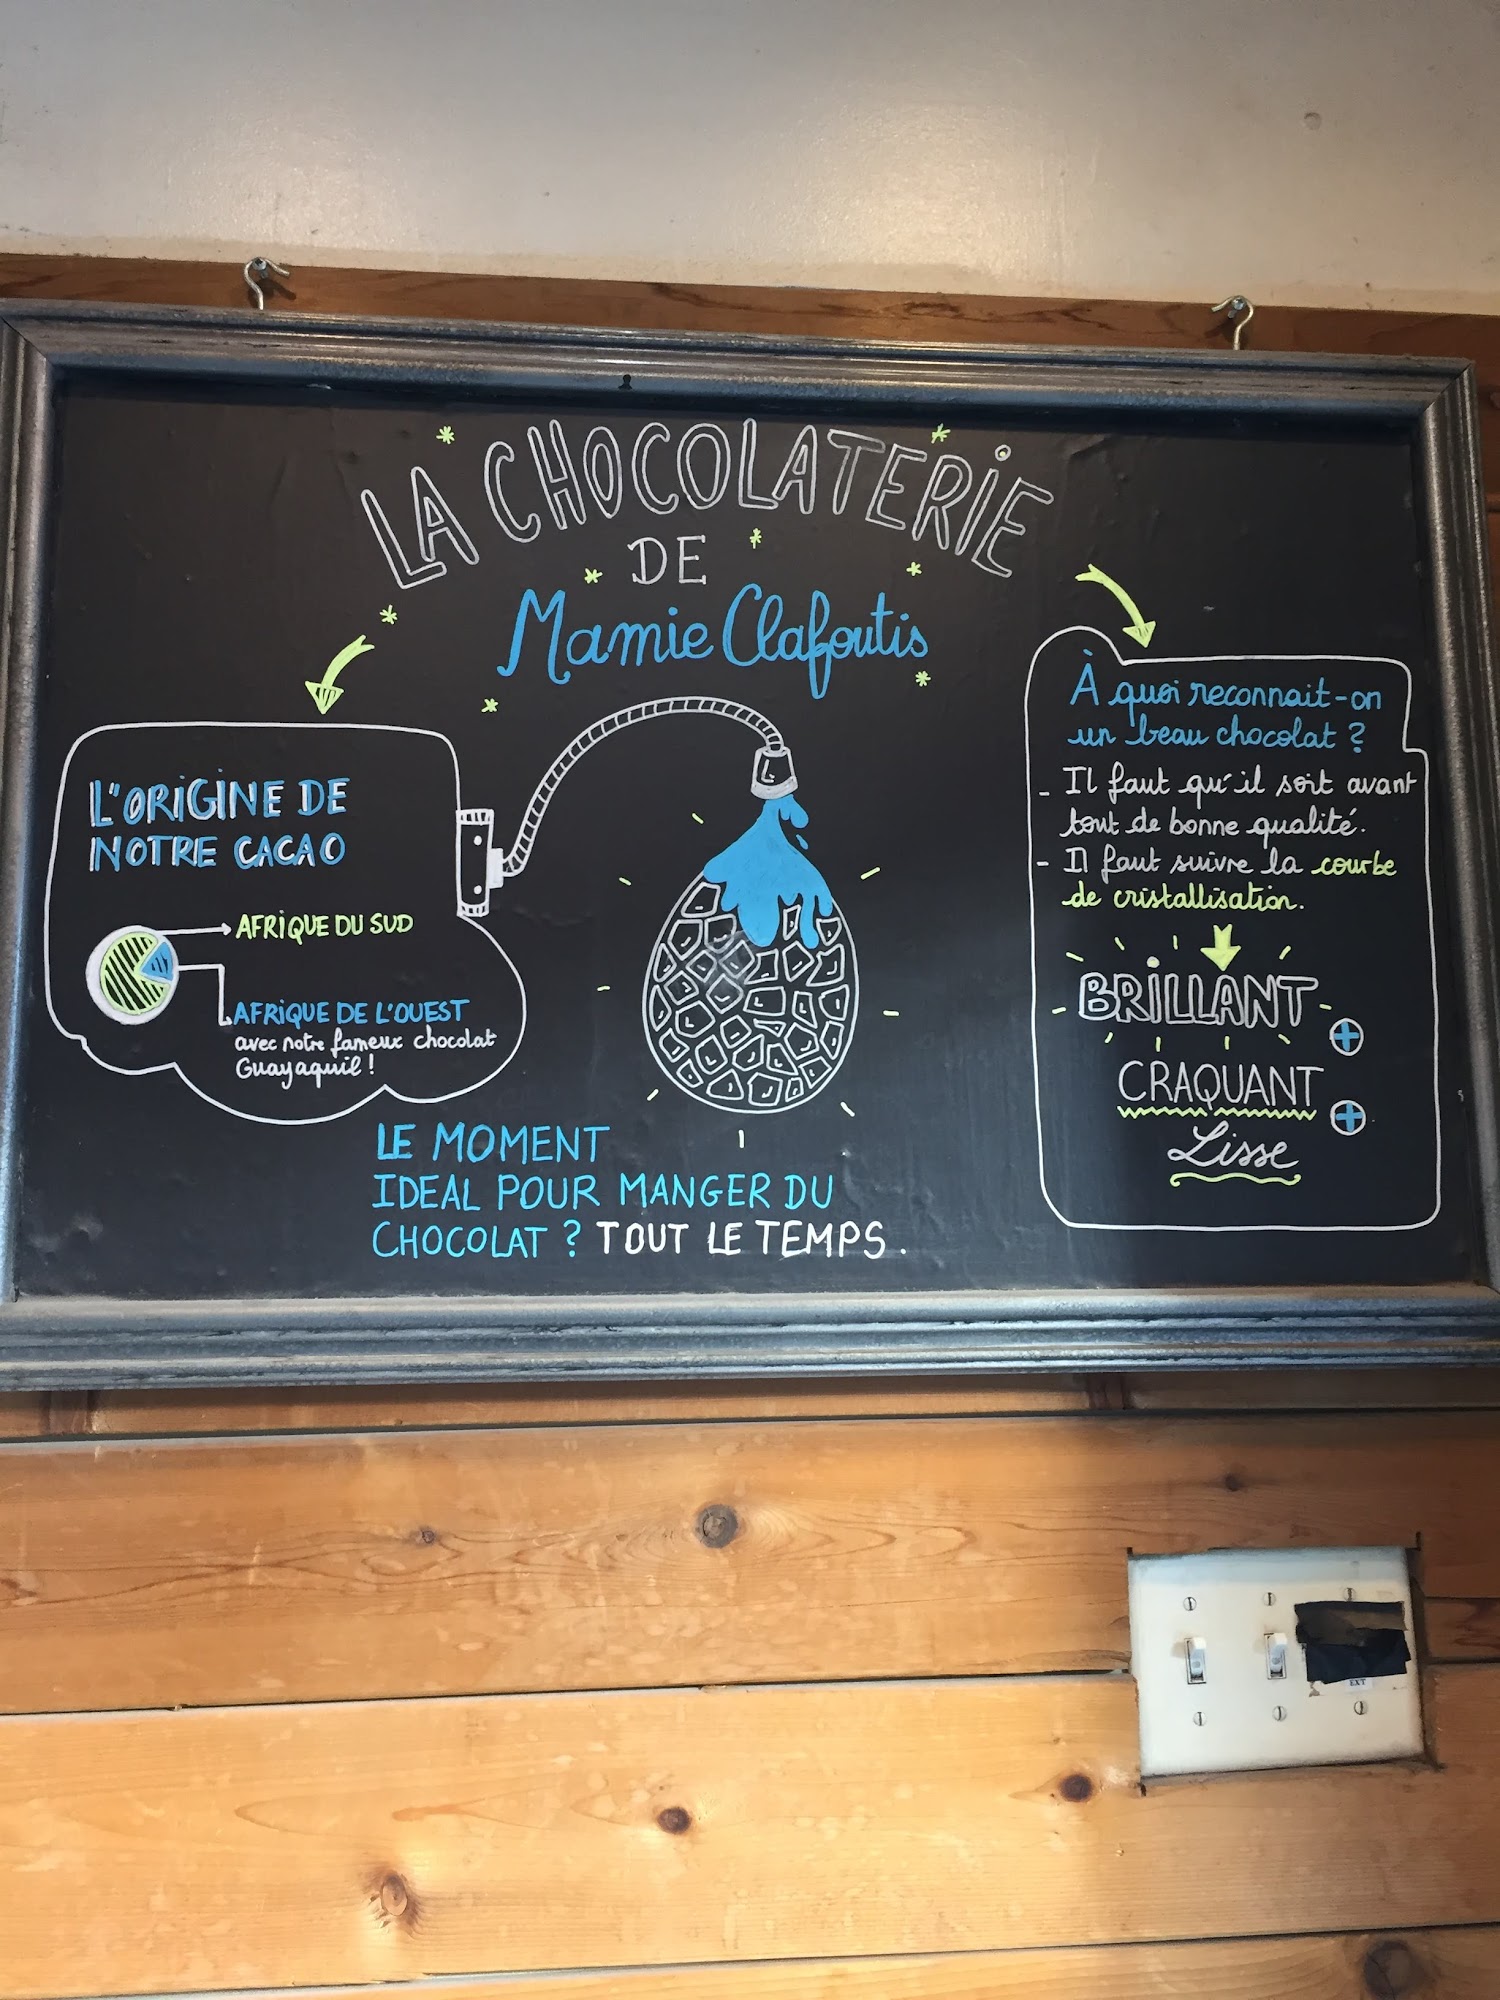 LA CHOCOLATERIE
DE
Mamie Clafoutis
L'ORIGINE DE
NOTRE CACAO
AFRIQUE DU SUD
AFRIQUE DE L'OUEST
avec notre fameux chocolat
Guayaquil !
LE MOMENT
IDEAL POUR MANGER DU
CHOCOLAT ? TOUT LE TEMPS .
À quoi reconnait-on
un beau chocolat ?
- Il faut qu'il soit avant
tout de bonne qualité.
- Il faut suivre la courbe
de cristallisation.
BRILLANT
+
CRAQUANT
+
Lisse
EXT